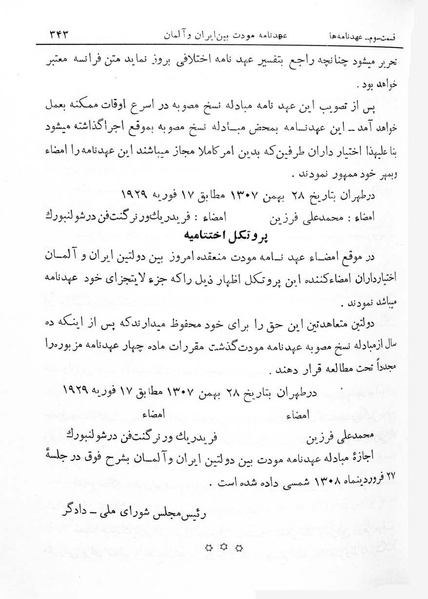 قسمت سوم ـ عهدنامه‌ها عهدنامه مودت بین ایران و آلمان ۳۴۳
تحریر میشود چنانچه راجع بتفسیر عهد نامه اختلافی بروز نماید متن فرانسه معتبر
خواهد بود .
پس از تصویب این عهدنامه مبادله نسخ مصوبه در اسرع اوقات ممکنه بعمل
خواهد آمد ــ این عهدنامه بمحض مبادله نسخ مصوبه بموقع اجرا گذاشته میشود
بنا علیهذا اختیار داران طرفین که بدین امر کاملا مجاز میباشند این عهدنامه را امضاء
وبمهر خود ممهور نمودند .
درطهران بتاریخ ۲۸ بهمن ۱۳۰۷ مطابق ۱۷ فوریه ۱۹۲۹
امضاء : محمدعلی فرزین امضاء : فریدریك ورنر گنت فن در شولنبورك
پروتکل اختتامیه
در موقع امضاء عهد نامه مودت منعقده امروز بین دولتین ایران و آلمان
اختیارداران امضاءکننده این پروتکل اظهار ذیل را که جزء لایتجزای خود عهدنامه
میباشد نمودند .
دولتین متعاهدتین این حق را برای خود محفوظ میدارند که پس از اینکه ده
سال از مبادله نسخ مصوبه عهدنامه مودت گذشت مقررات ماده چهار عهدنامه مزبوره را
مجدداً تحت مطالعه قرار دهند .
درطهران بتاریخ ۲۸ بهمن ۱۳۰۷ مطابق ۱۷ فوریه ۱۹۲۹
امضاء امضاء
محمدعلی فرزین فریدریك ورنر گنت فن در شولنبورك
اجازهٔ مبادله عهدنامه مودت بین دولتین ایران و آلمان بشرح فوق در جلسهٔ
۲۷ فروردینماه ۱۳۰۸ شمسی داده شده است .
رئیس مجلس شورای ملی ــ دادگر